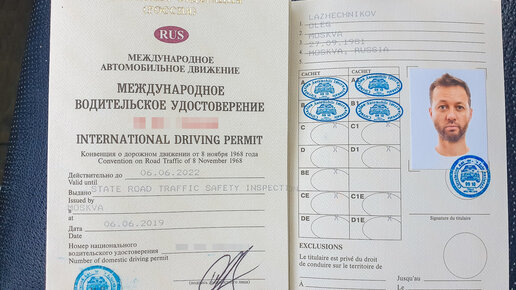 RUS
МЕЖДУНАРОДНОЕ
АВТОМОБИЛЬНОЕ ДВИЖЕНИЕ
МЕЖДУНАРОДНОЕ
ВОДИТЕЛЬСКОЕ УДОСТОВЕРЕНИЕ
INTERNATIONAL DRIVING PERMIT
Конвенция о дорожном движении от 8 ноября 1968 года
Convention on Road Traffic of 8 November 1968
Действительно до 06.06.2022
Valid until
Выдано STATE ROAD TRAFFIC SAFETY INSPECTION
Issued by
MOSKVA
At
Дата 06.06.2019
Date
Номер национального
водительского удостоверения
Number of domestic driving permit
1. LAZHECHNIKOV
2. OLEG
3. MOSKVA
4. 27.09.1981
5. MOSKVA, RUSSIA
CACHET CACHET
A A1
B B1
C C1
D D1
BE
CE C1E
DE D1E
Signature du titulaire
EXCLUSIONS
Le titulaire est privé du droit
de conduire sur le territoire de
Jusqu'au
Le